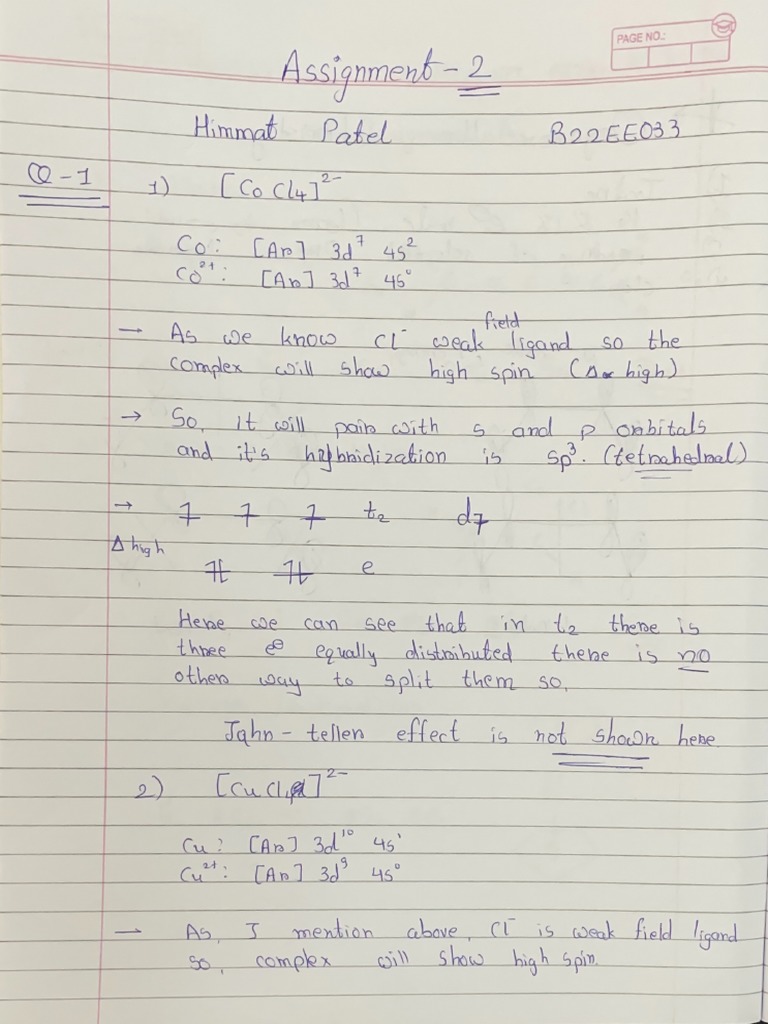 PAGE NO.:
Assignment - 2
Himmat Patel B22EE033
Q - 1 1) [CoCl4]²⁻
Co: [Ar] 3d⁷ 4s²
Co²⁺: [Ar] 3d⁷ 4s⁰
→ As we know Cl⁻ weak field ligand so the
complex will show high spin (Δ∝ high)
→ So, it will pair with s and p orbitals
and it's hybridization is sp³. (tetrahedral)
→ 1 1 1 t₂ d7
Δ high
1l 1l e
Here we can see that in t₂ there is
three e⁰ equally distributed there is no
other way to split them so,
Jahn-teller effect is not shown here.
2) [CuCl4]²⁻
Cu: [Ar] 3d¹⁰ 4s¹
Cu²⁺: [Ar] 3d⁹ 4s⁰
— As, I mention above, Cl⁻ is weak field ligand
so, complex will show high spin.